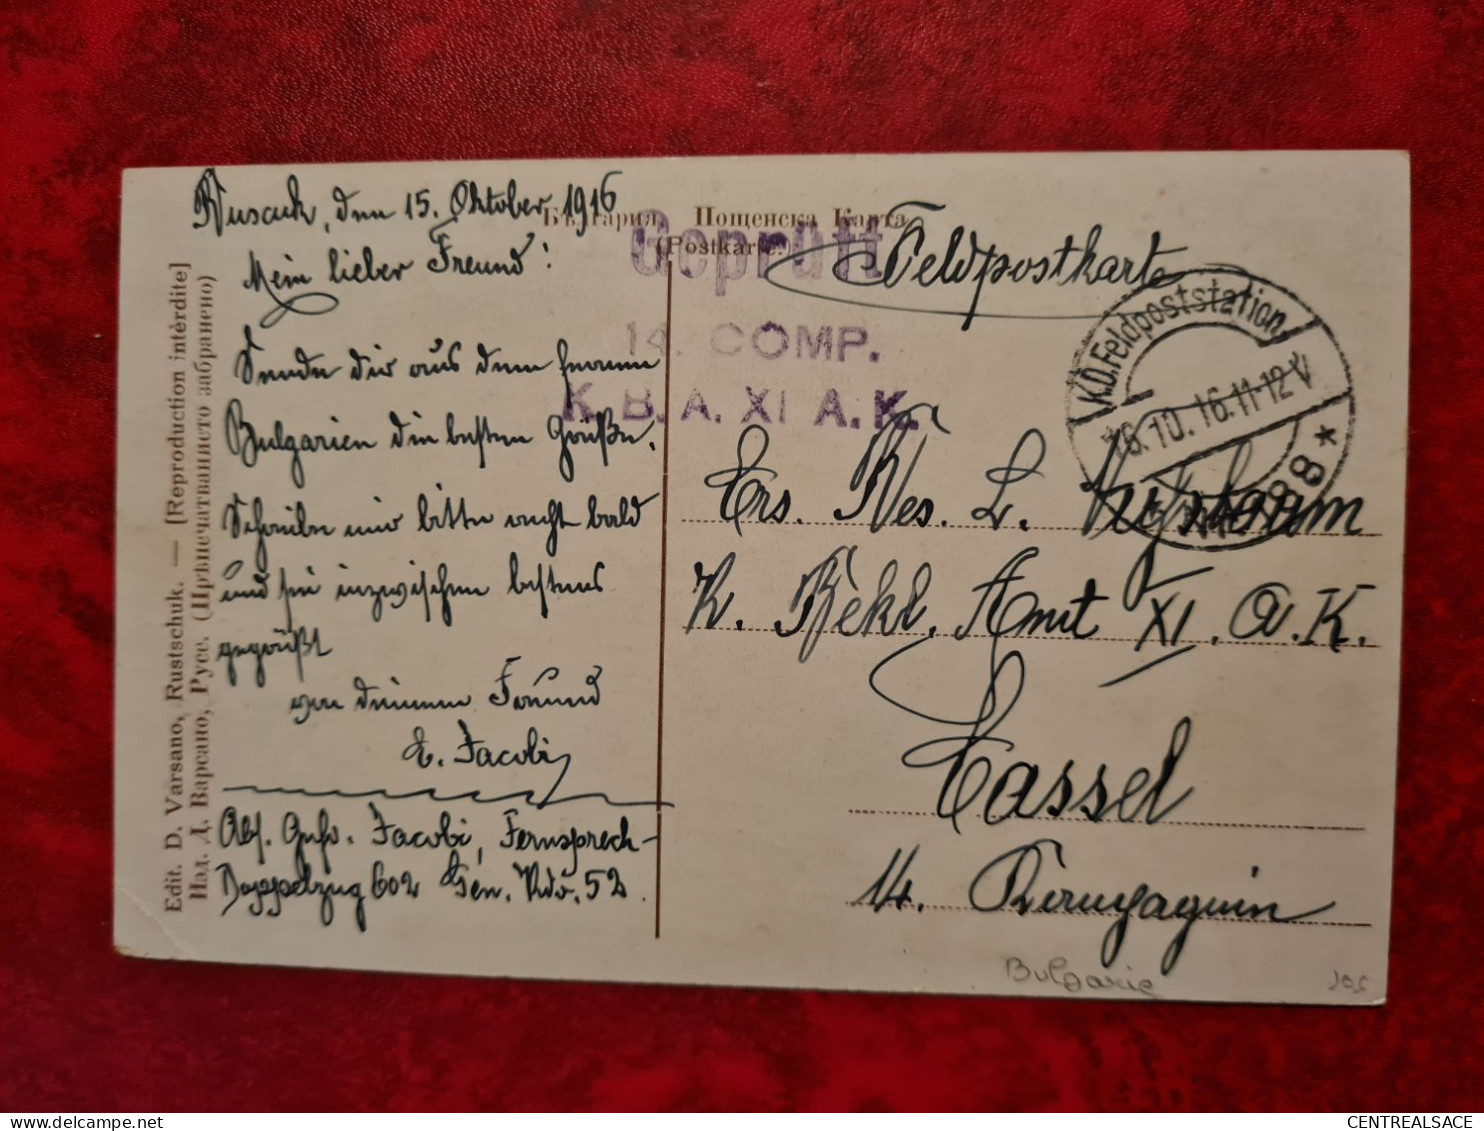 Ruscuk, den 15. Oktober 1916
Mein lieber Freund!
Sende dir aus dem fernen
Bulgarien die besten Grüße.
Schreibe mir bitte recht bald
und sei inzwischen bestens
gegrüßt
von deinem Freund
E. Jacobi
Abs. Gefr. Jacobi, Fernsprech-
Doppelzug 602 Gen. Kdo. 52
Edit. D. Varsano, Rustschuk. — [Reproduction intèrdite]
Изд. Д. Варсано, Русе. (Прѣпечатванието забранено)
България Пощенска Карта
(Postkarte.)
Geprüft
14. COMP.
K. B. A. XI A. K.
Feldpostkarte
K.D. Feldpoststation
16.10.16.11-12 V
* 98 *
Ers. Res. L.
K. Bekl. Amt XI. A. K.
Cassel
Bulgarie
CENTREALSACE